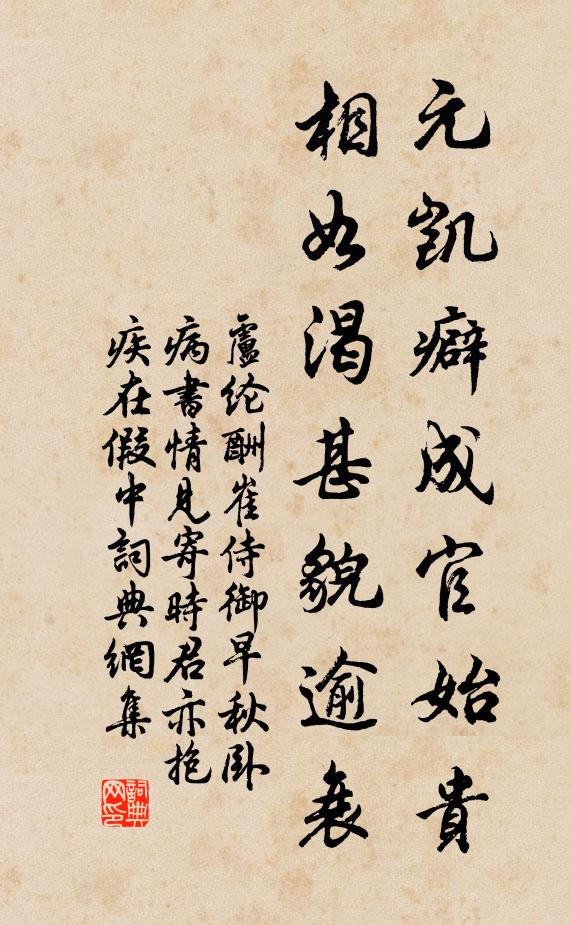 元凯癖成官始貴
相如渴甚貌逾衰
盧纶酬崔侍御早秋卧
病書情見寄時君亦抱
疾在假中詞典網集
詞典
网印